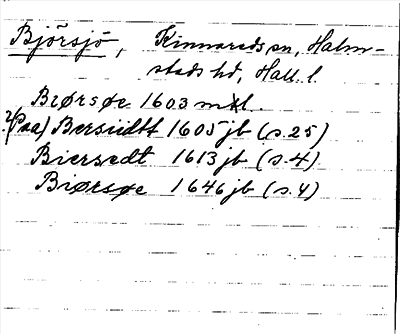 Björsjö, Kinnareds sn, Halm-
stads hd, Hall. l.
Biørsøe 1603 mkl.
?(Paa) Bersiidtt 1605 jb (s. 25)
Biersedt 1613 jb (s. 4)
Biørsøe 1646 jb (s. 4)